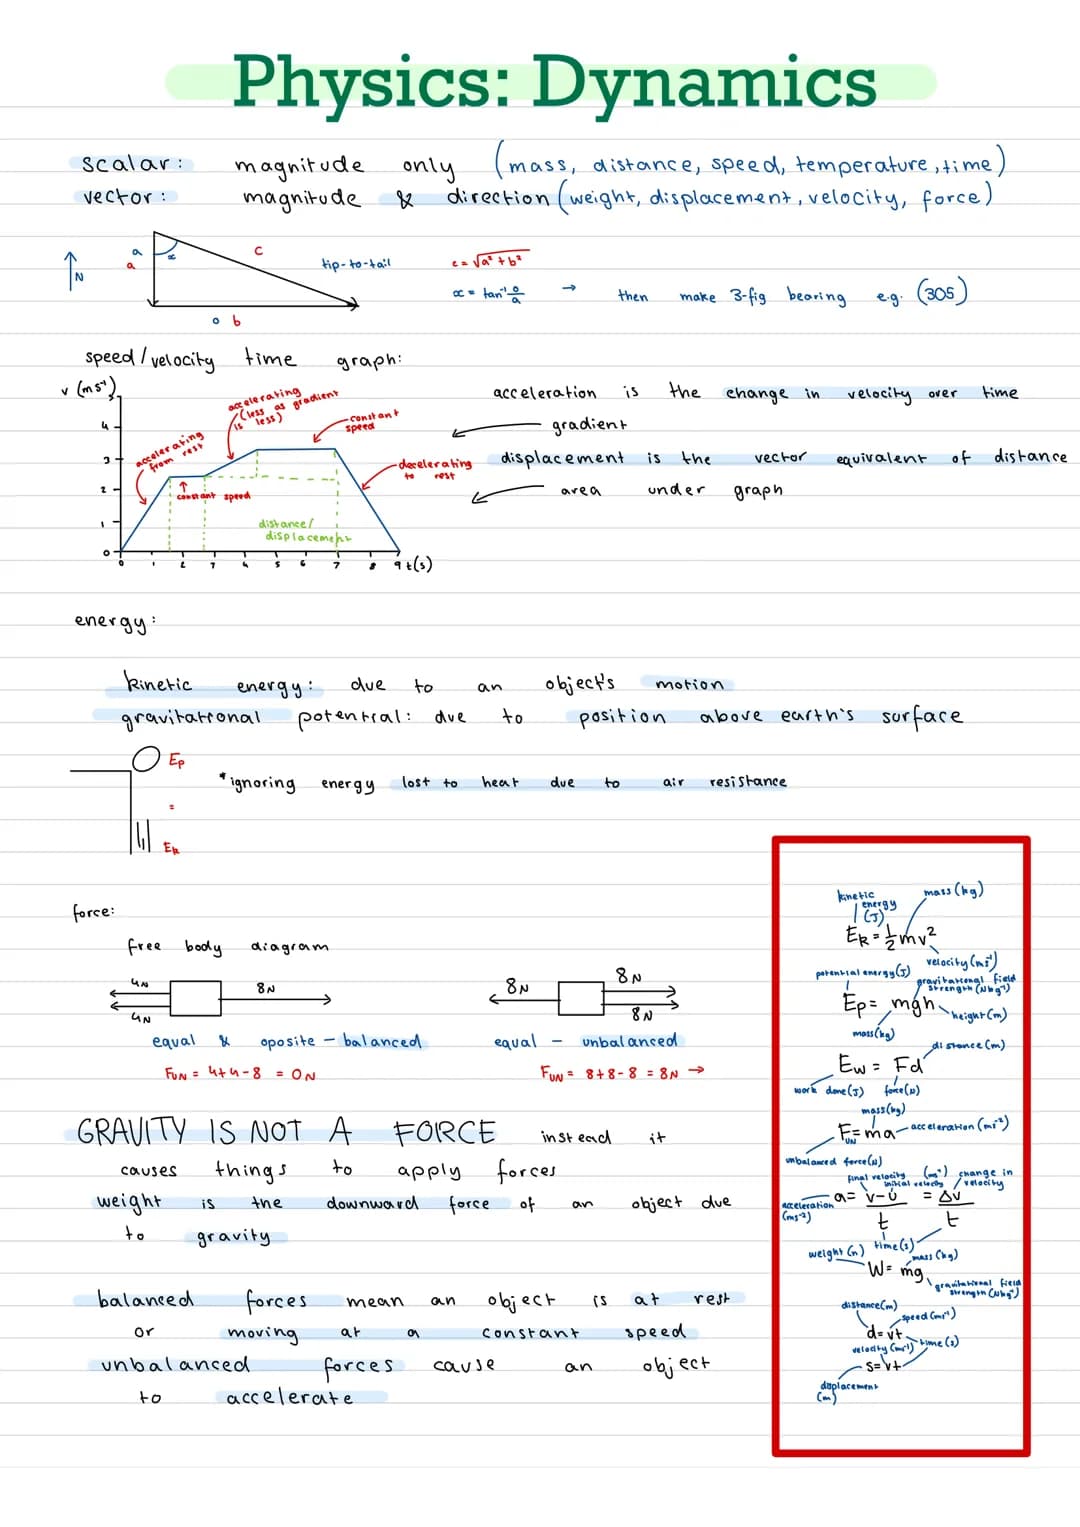 Physics: Dynamics
scalar: magnitude only (mass, distance, speed, temperature, time)
vector: magnitude & direction (weight, displacement, velocity, force)
N
a
a
x
c
o b
tip-to-tail
c = √a² + b²
x = tan⁻¹ o/a → then make 3-fig bearing e.g. (305)
speed/velocity time graph:
v (ms⁻¹)
4
3
2
1
0
accelerating from rest
constant speed
accelerating (less as gradient is less)
constant speed
decelerating to rest
distance/
displacement
0 1 2 3 4 5 6 7 8 9 t(s)
acceleration is the change in velocity over time
gradient
displacement is the vector equivalent of distance
area under graph
energy:
kinetic energy: due to an object's motion
gravitational potential: due to position above earth's surface
Ep
=
Ek
*ignoring energy lost to heat due to air resistance
force:
free body diagram
4N
4N
8N
equal & oposite - balanced
FUN = 4+4-8 = 0N
8N
8N
8N
equal - unbalanced
FUN = 8+8-8 = 8N →
GRAVITY IS NOT A FORCE instead it
causes things to apply forces
weight is the downward force of an object due
to gravity
balanced forces mean an object is at rest
or moving at a constant speed
unbalanced forces cause an object
to accelerate
kinetic energy (J)
mass (kg)
Ek = ½mv²
velocity (ms⁻¹)
potential energy (J)
gravitational field strength (Nkg⁻¹)
Ep = mgh
height (m)
mass (kg)
distance (m)
Ew = Fd
work done (J)
force (N)
mass (kg)
F = ma
UN
acceleration (ms⁻²)
unbalanced force (N)
final velocity (ms⁻¹)
initial velocity
change in velocity
acceleration (ms⁻²)
a = v-u/t = Δv/t
time (s)
weight (n)
mass (kg)
W = mg
gravitational field strength (Nkg⁻¹)
distance (m)
speed (ms⁻¹)
d = vt
time (s)
velocity (ms⁻¹)
s = vt
displacement (m)